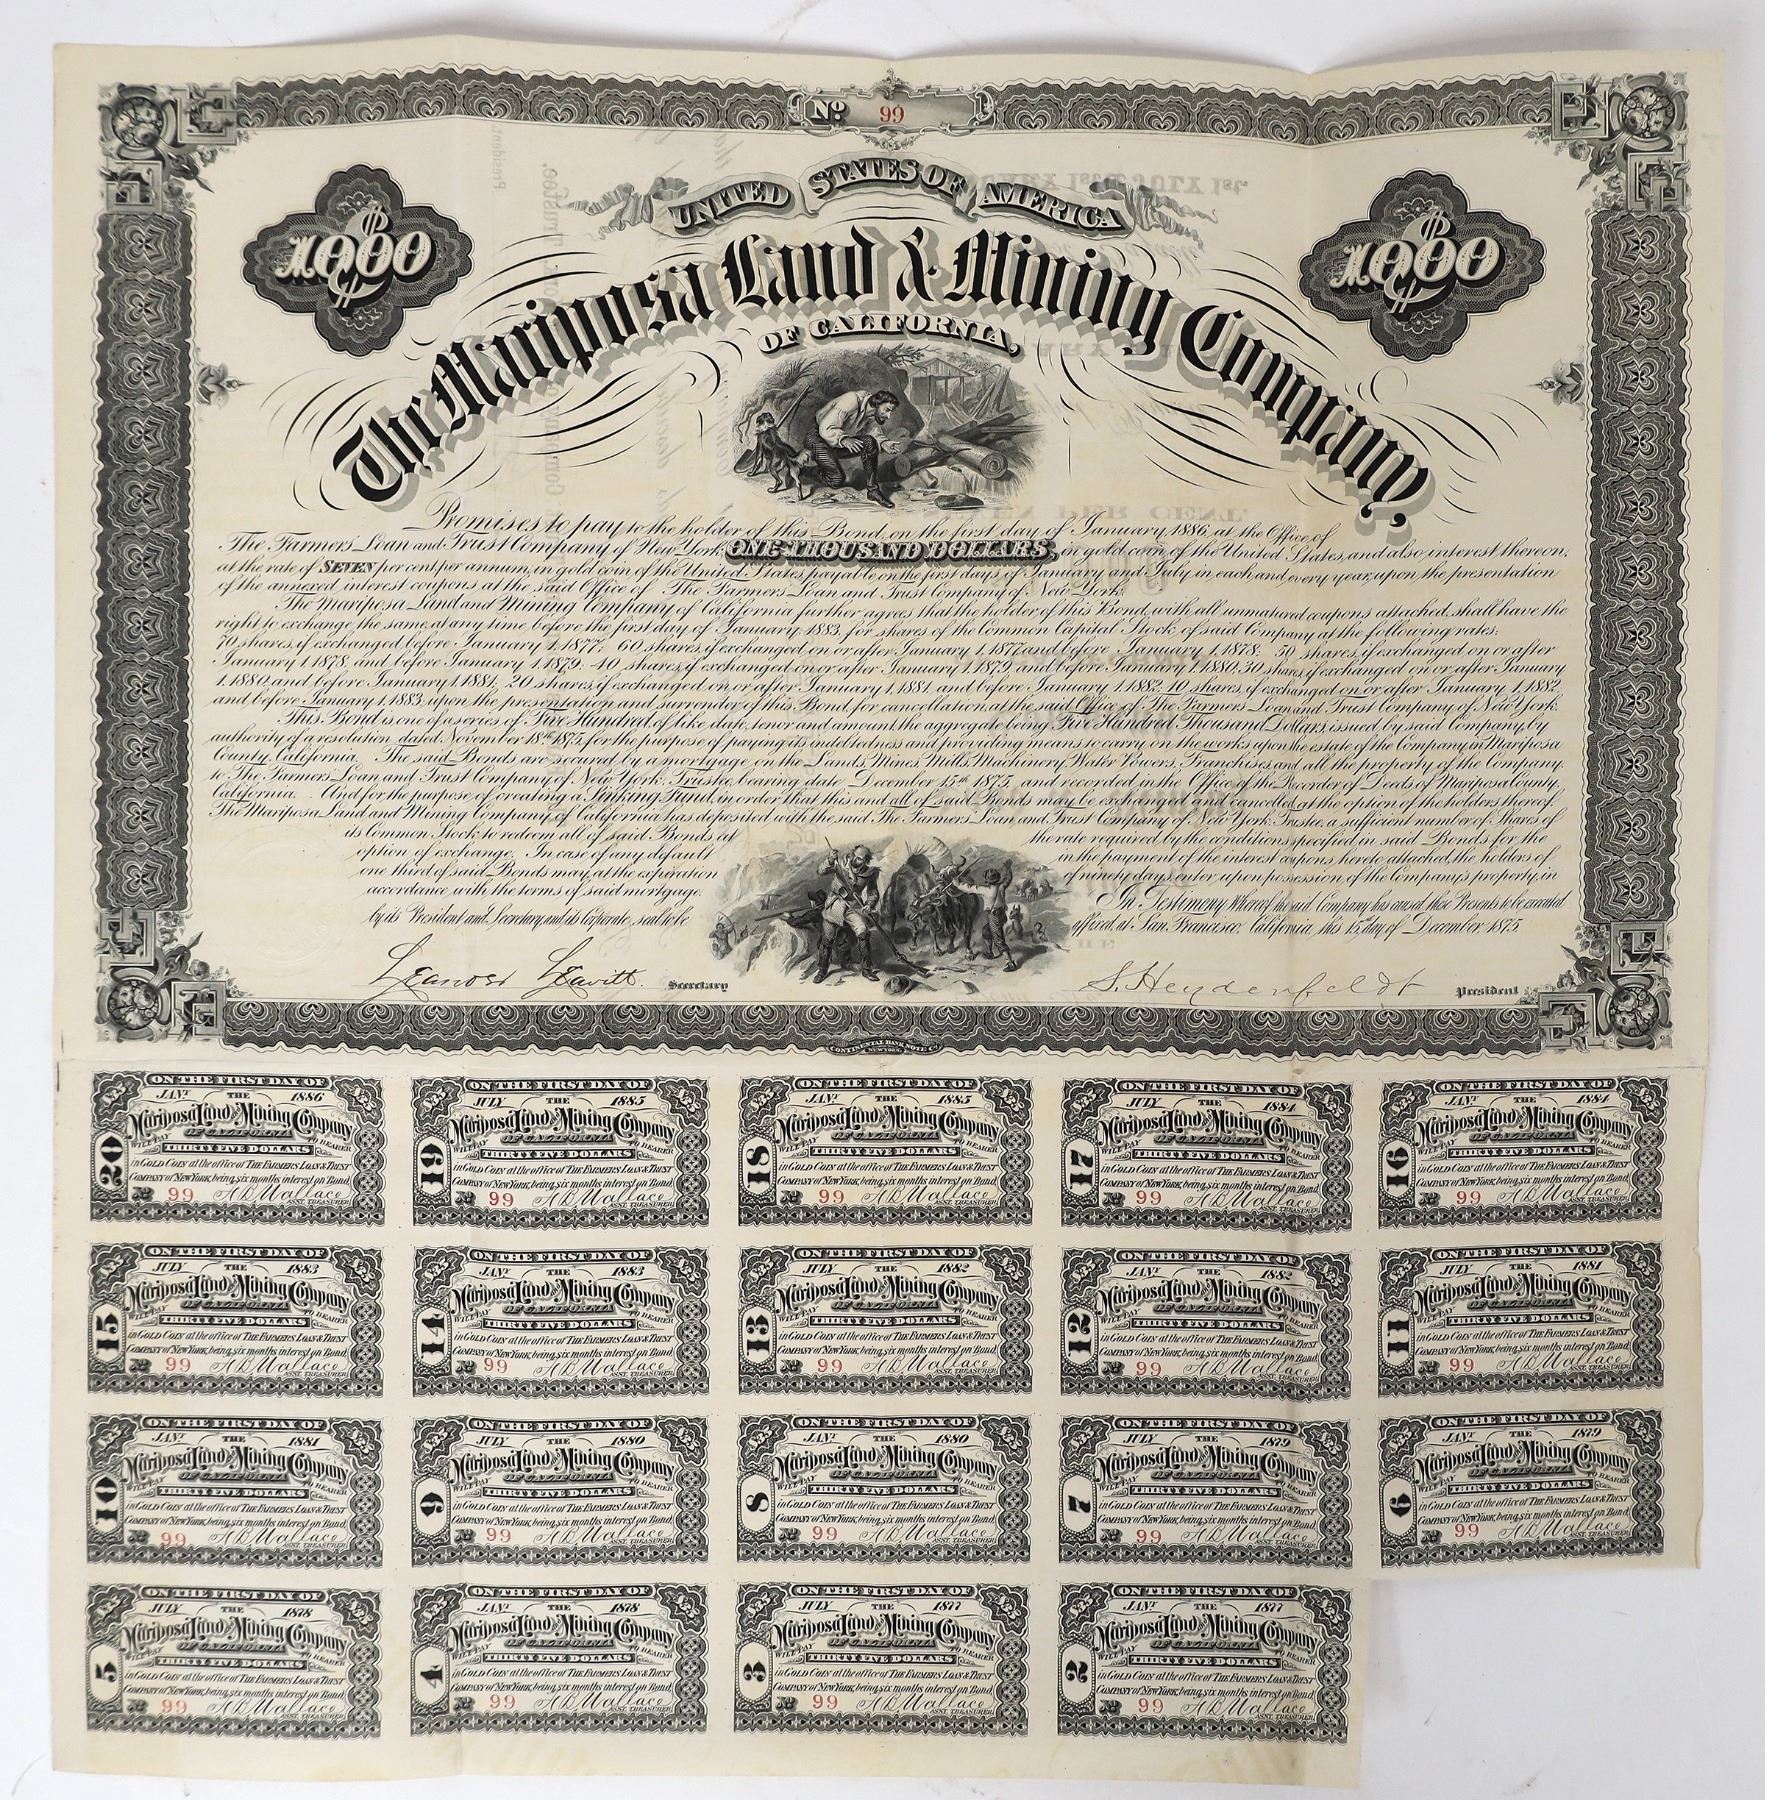 No. 99
UNITED STATES OF AMERICA
$1000
$1000
The Mariposa Land & Mining Company,
OF CALIFORNIA,
Promises to pay to the holder of this Bond, on the first day of January 1886, at the Office of
The Farmers' Loan and Trust Company of New York, ONE THOUSAND DOLLARS, in gold coin of the United States, and also interest thereon,
at the rate of SEVEN per cent. per annum, in gold coin of the United States payable on the first days of January and July in each and every year, upon the presentation
of the annexed interest coupons at the said Office of The Farmers Loan and Trust Company of New York.
The Mariposa Land and Mining Company of California further agrees that the holder of this Bond, with all unmatured coupons attached, shall have the
right to exchange the same, at any time before the first day of January, 1883, for shares of the Common Capital Stock of said Company at the following rates:
70 shares, if exchanged before January 1, 1877; 60 shares, if exchanged on or after January 1, 1877 and before January 1, 1878; 50 shares, if exchanged on or after
January 1, 1878, and before January 1, 1879; 40 shares, if exchanged on or after January 1, 1879, and before January 1, 1880; 30 shares, if exchanged on or after January
1, 1880, and before January 1, 1881; 20 shares, if exchanged on or after January 1, 1881, and before January 1, 1882; 10 shares, if exchanged on or after January 1, 1882,
and before January 1, 1883, upon the presentation and surrender of this Bond, for cancellation, at the said Office of The Farmers Loan and Trust Company of New York.
This Bond is one of a series of Five Hundred of like date, tenor and amount, the aggregate being Five Hundred Thousand Dollars, issued by said Company, by
authority of a resolution, dated November 18th 1875, for the purpose of paying its indebtedness and providing means to carry on the works upon the estate of the Company in Mariposa
County, California. The said Bonds are secured by a mortgage on the Lands, Mines, Mills, Machinery, Water Powers, Franchises, and all the property of the Company,
to The Farmers Loan and Trust Company of New York, Trustee, bearing date December 15th 1875, and recorded in the Office of the Recorder of Deeds of Mariposa County,
California. And for the purpose of creating a Sinking Fund, in order that this and all of said Bonds may be exchanged and cancelled, at the option of the holders thereof,
The Mariposa Land and Mining Company of California has deposited with the said The Farmers' Loan and Trust Company of New York, Trustee, a sufficient number of Shares of
its Common Stock to redeem all of said Bonds at the rate required by the conditions specified in said Bonds for the
option of exchange. In case of any default in the payment of the interest coupons, hereto attached, the holders of
one third of said Bonds may, at the expiration of ninety days, enter upon possession of the Company's property, in
accordance with the terms of said mortgage. In Testimony Whereof the said Company has caused these Presents to be executed
by its President and Secretary, and its Corporate seal to be affixed, at San Francisco, California, this 15th day of December, 1875.
Leander Leavitt. Secretary S. Heydenfeldt President
CONTINENTAL BANK NOTE Co. NEW YORK.
ON THE FIRST DAY OF
JANY. THE 1886
Mariposa Land and Mining Company
OF CALIFORNIA
WILL PAY TO BEARER
THIRTY FIVE DOLLARS
in GOLD COIN at the office of THE FARMERS LOAN & TRUST
COMPANY of NEW YORK, being six months interest on Bond
20 No. 99 A B Wallace ASST. TREASURER
$35
ON THE FIRST DAY OF
JULY THE 1885
Mariposa Land and Mining Company
OF CALIFORNIA
WILL PAY TO BEARER
THIRTY FIVE DOLLARS
in GOLD COIN at the office of THE FARMERS LOAN & TRUST
COMPANY of NEW YORK, being six months interest on Bond
19 No. 99 A B Wallace ASST. TREASURER
$35
ON THE FIRST DAY OF
JANY. THE 1885
Mariposa Land and Mining Company
OF CALIFORNIA
WILL PAY TO BEARER
THIRTY FIVE DOLLARS
in GOLD COIN at the office of THE FARMERS LOAN & TRUST
COMPANY of NEW YORK, being six months interest on Bond
18 No. 99 A B Wallace ASST. TREASURER
$35
ON THE FIRST DAY OF
JULY THE 1884
Mariposa Land and Mining Company
OF CALIFORNIA
WILL PAY TO BEARER
THIRTY FIVE DOLLARS
in GOLD COIN at the office of THE FARMERS LOAN & TRUST
COMPANY of NEW YORK, being six months interest on Bond
17 No. 99 A B Wallace ASST. TREASURER
$35
ON THE FIRST DAY OF
JANY. THE 1884
Mariposa Land and Mining Company
OF CALIFORNIA
WILL PAY TO BEARER
THIRTY FIVE DOLLARS
in GOLD COIN at the office of THE FARMERS LOAN & TRUST
COMPANY of NEW YORK, being six months interest on Bond
16 No. 99 A B Wallace ASST. TREASURER
$35
ON THE FIRST DAY OF
JULY THE 1883
Mariposa Land and Mining Company
OF CALIFORNIA
WILL PAY TO BEARER
THIRTY FIVE DOLLARS
in GOLD COIN at the office of THE FARMERS LOAN & TRUST
COMPANY of NEW YORK, being six months interest on Bond
15 No. 99 A B Wallace ASST. TREASURER
$35
ON THE FIRST DAY OF
JANY. THE 1883
Mariposa Land and Mining Company
OF CALIFORNIA
WILL PAY TO BEARER
THIRTY FIVE DOLLARS
in GOLD COIN at the office of THE FARMERS LOAN & TRUST
COMPANY of NEW YORK, being six months interest on Bond
14 No. 99 A B Wallace ASST. TREASURER
$35
ON THE FIRST DAY OF
JULY THE 1882
Mariposa Land and Mining Company
OF CALIFORNIA
WILL PAY TO BEARER
THIRTY FIVE DOLLARS
in GOLD COIN at the office of THE FARMERS LOAN & TRUST
COMPANY of NEW YORK, being six months interest on Bond
13 No. 99 A B Wallace ASST. TREASURER
$35
ON THE FIRST DAY OF
JANY. THE 1882
Mariposa Land and Mining Company
OF CALIFORNIA
WILL PAY TO BEARER
THIRTY FIVE DOLLARS
in GOLD COIN at the office of THE FARMERS LOAN & TRUST
COMPANY of NEW YORK, being six months interest on Bond
12 No. 99 A B Wallace ASST. TREASURER
$35
ON THE FIRST DAY OF
JULY THE 1881
Mariposa Land and Mining Company
OF CALIFORNIA
WILL PAY TO BEARER
THIRTY FIVE DOLLARS
in GOLD COIN at the office of THE FARMERS LOAN & TRUST
COMPANY of NEW YORK, being six months interest on Bond
11 No. 99 A B Wallace ASST. TREASURER
$35
ON THE FIRST DAY OF
JANY. THE 1881
Mariposa Land and Mining Company
OF CALIFORNIA
WILL PAY TO BEARER
THIRTY FIVE DOLLARS
in GOLD COIN at the office of THE FARMERS LOAN & TRUST
COMPANY of NEW YORK, being six months interest on Bond
10 No. 99 A B Wallace ASST. TREASURER
$35
ON THE FIRST DAY OF
JULY THE 1880
Mariposa Land and Mining Company
OF CALIFORNIA
WILL PAY TO BEARER
THIRTY FIVE DOLLARS
in GOLD COIN at the office of THE FARMERS LOAN & TRUST
COMPANY of NEW YORK, being six months interest on Bond
9 No. 99 A B Wallace ASST. TREASURER
$35
ON THE FIRST DAY OF
JANY. THE 1880
Mariposa Land and Mining Company
OF CALIFORNIA
WILL PAY TO BEARER
THIRTY FIVE DOLLARS
in GOLD COIN at the office of THE FARMERS LOAN & TRUST
COMPANY of NEW YORK, being six months interest on Bond
8 No. 99 A B Wallace ASST. TREASURER
$35
ON THE FIRST DAY OF
JULY THE 1879
Mariposa Land and Mining Company
OF CALIFORNIA
WILL PAY TO BEARER
THIRTY FIVE DOLLARS
in GOLD COIN at the office of THE FARMERS LOAN & TRUST
COMPANY of NEW YORK, being six months interest on Bond
7 No. 99 A B Wallace ASST. TREASURER
$35
ON THE FIRST DAY OF
JANY. THE 1879
Mariposa Land and Mining Company
OF CALIFORNIA
WILL PAY TO BEARER
THIRTY FIVE DOLLARS
in GOLD COIN at the office of THE FARMERS LOAN & TRUST
COMPANY of NEW YORK, being six months interest on Bond
6 No. 99 A B Wallace ASST. TREASURER
$35
ON THE FIRST DAY OF
JULY THE 1878
Mariposa Land and Mining Company
OF CALIFORNIA
WILL PAY TO BEARER
THIRTY FIVE DOLLARS
in GOLD COIN at the office of THE FARMERS LOAN & TRUST
COMPANY of NEW YORK, being six months interest on Bond
5 No. 99 A B Wallace ASST. TREASURER
$35
ON THE FIRST DAY OF
JANY. THE 1878
Mariposa Land and Mining Company
OF CALIFORNIA
WILL PAY TO BEARER
THIRTY FIVE DOLLARS
in GOLD COIN at the office of THE FARMERS LOAN & TRUST
COMPANY of NEW YORK, being six months interest on Bond
4 No. 99 A B Wallace ASST. TREASURER
$35
ON THE FIRST DAY OF
JULY THE 1877
Mariposa Land and Mining Company
OF CALIFORNIA
WILL PAY TO BEARER
THIRTY FIVE DOLLARS
in GOLD COIN at the office of THE FARMERS LOAN & TRUST
COMPANY of NEW YORK, being six months interest on Bond
3 No. 99 A B Wallace ASST. TREASURER
$35
ON THE FIRST DAY OF
JANY. THE 1877
Mariposa Land and Mining Company
OF CALIFORNIA
WILL PAY TO BEARER
THIRTY FIVE DOLLARS
in GOLD COIN at the office of THE FARMERS LOAN & TRUST
COMPANY of NEW YORK, being six months interest on Bond
2 No. 99 A B Wallace ASST. TREASURER
$35